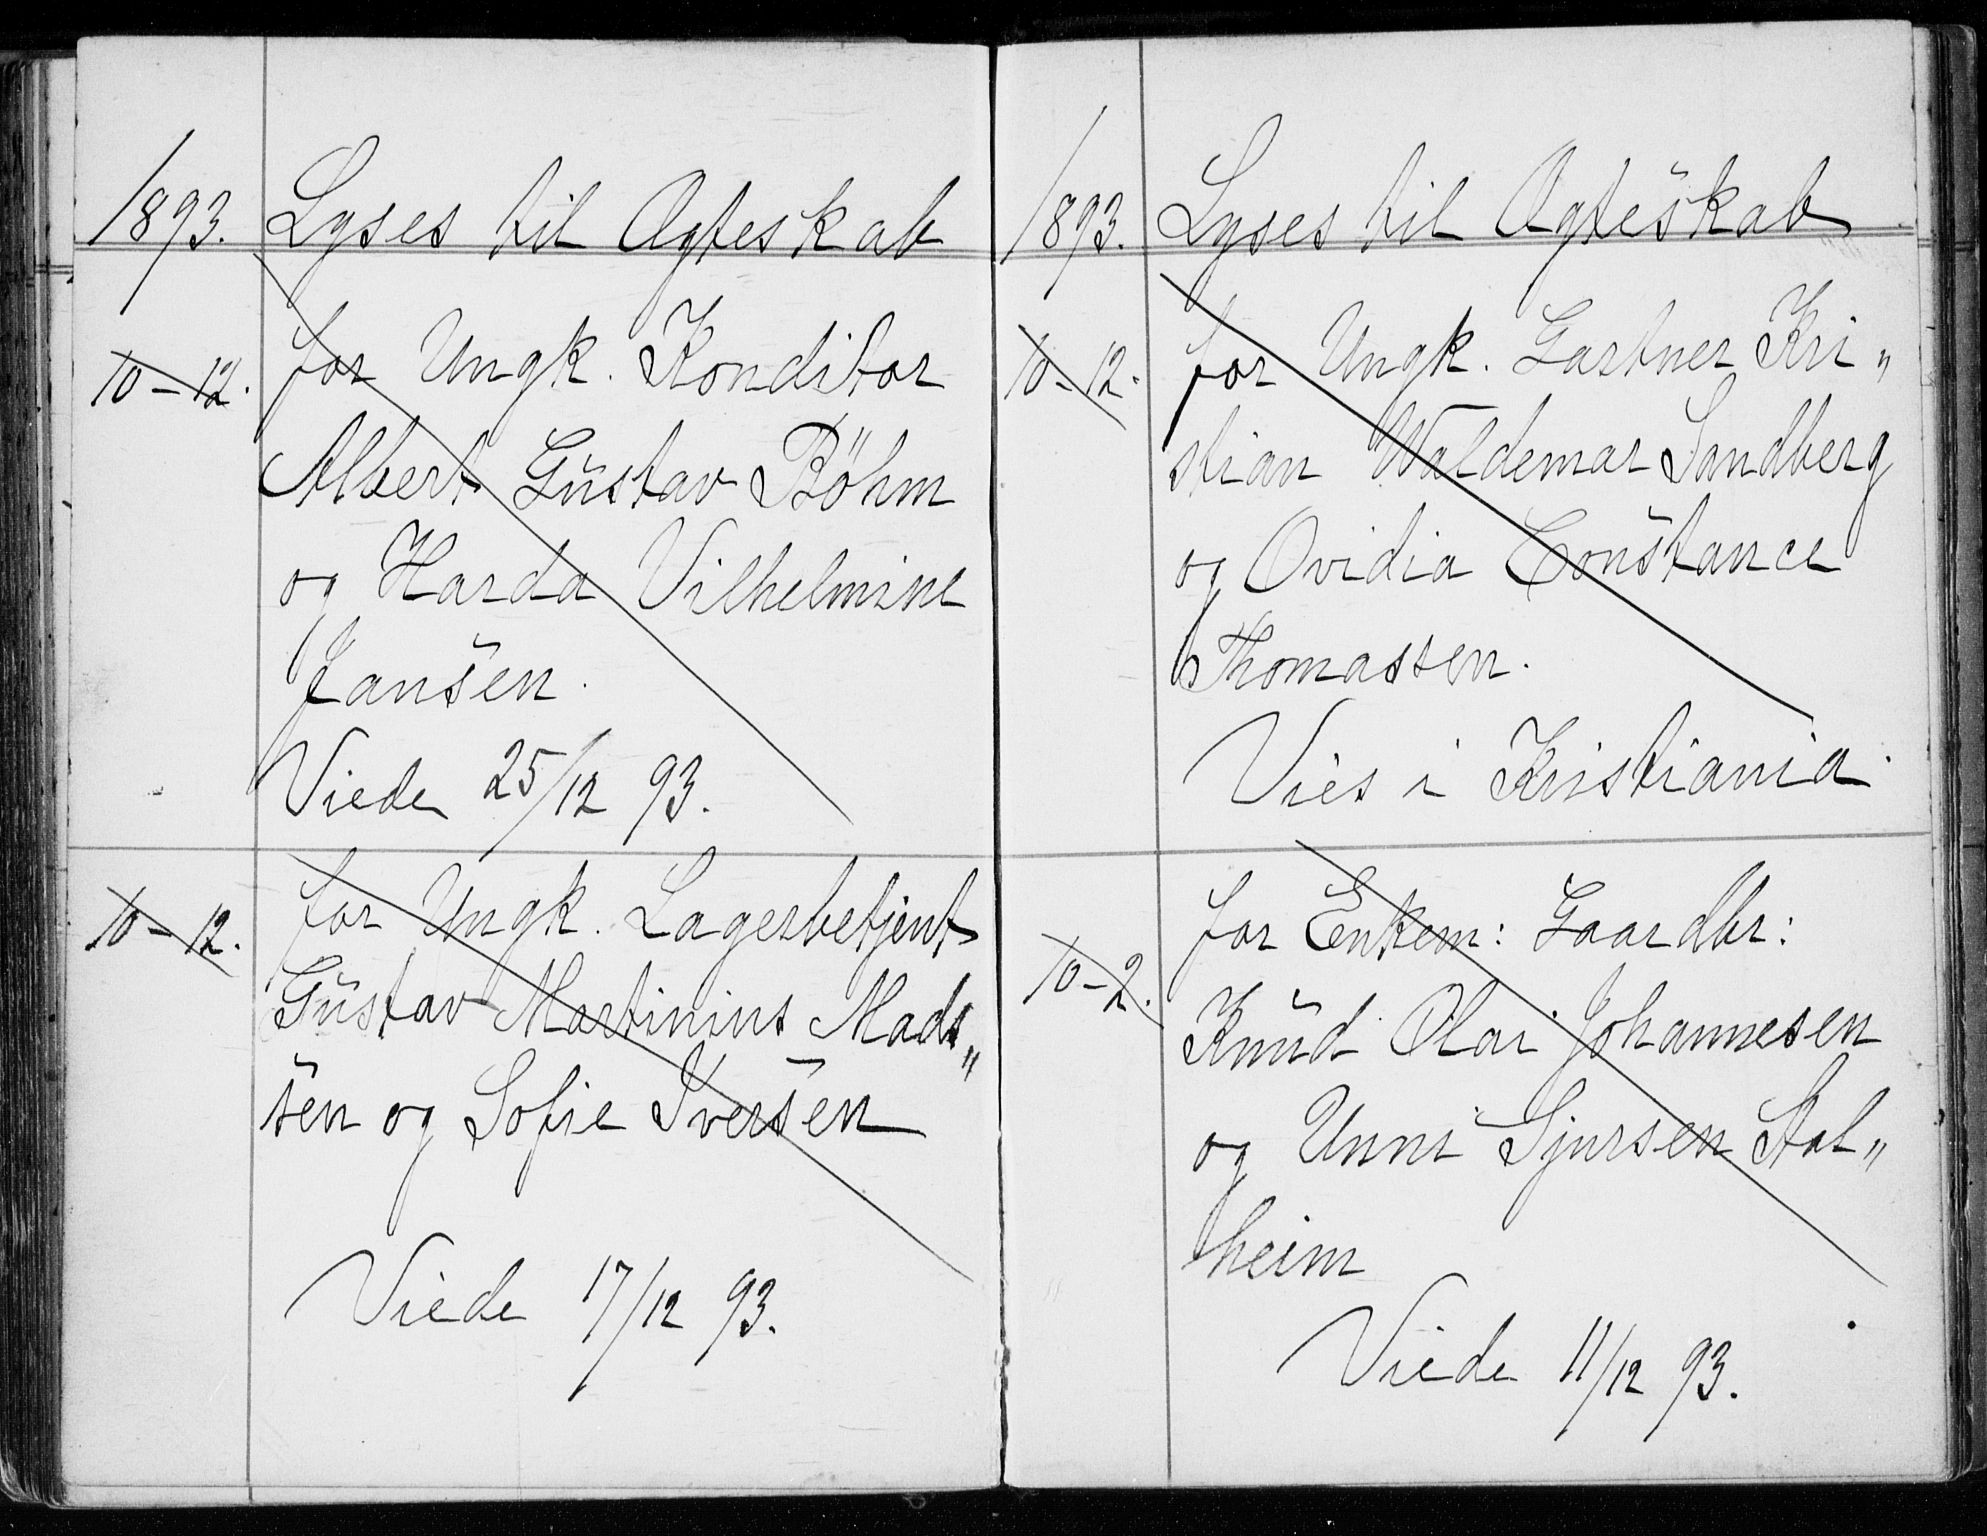 1893. Lyses til Ægteskab
10-12. for Ungk. Konditor
Albert Gustav Böhm
og Harda Vilhelmine
Jansen.
Viede 25/12 93.
10-12. for Ungk. Lagerbetjent
Gustav Martinius Mad„
sen og Sofie Iversen
Viede 17/12 93.
1893. Lyses til Ægteskab
10-12. for Ungk. Gartner Kri„
stian Waldemar Sandberg
og Ovidia Constance
Thomassen.
Vies i Kristiania.
10-2. for Enkem: Gaardbr:
Knud Olai Johannesen
og Unni Sjursen Stal„
heim
Viede 11/12 93.